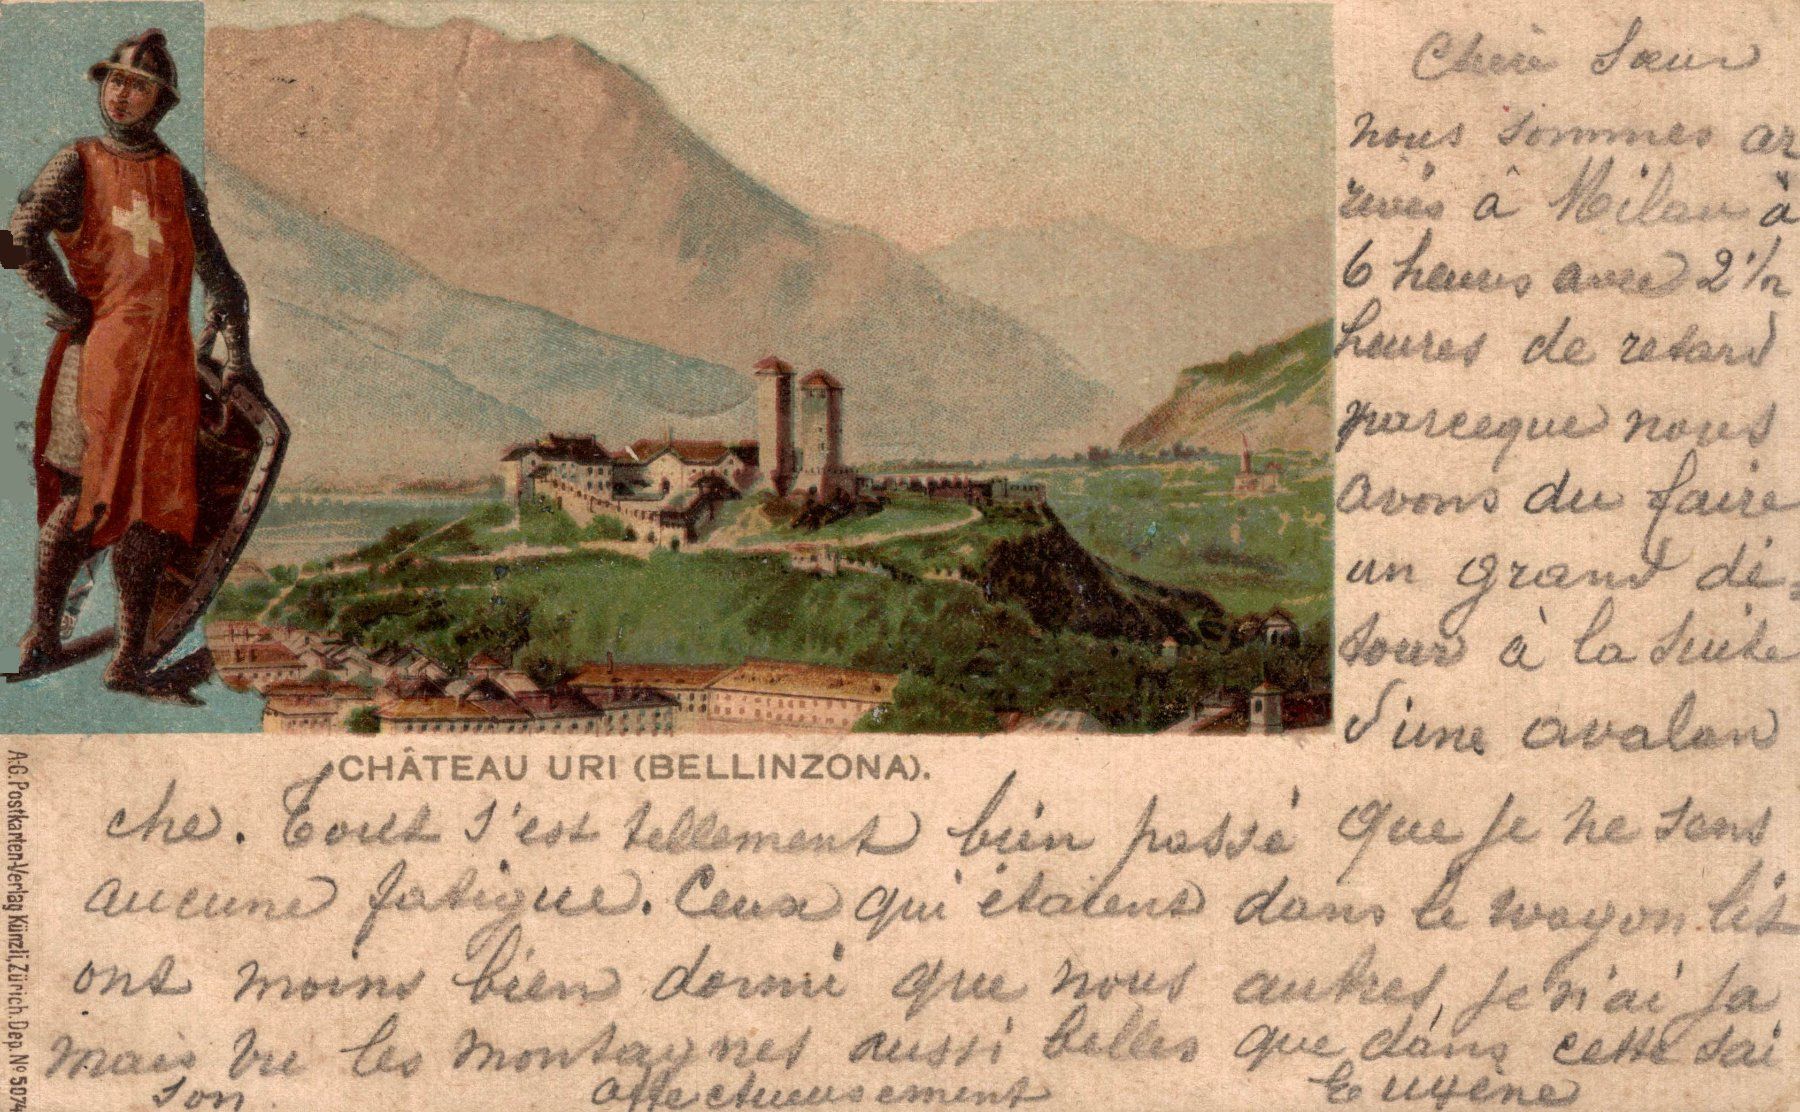 Chère Sœur
nous sommes ar
rivés à Milan à
6 heures avec 2 1/2
heures de retard
parceque nous
avons du faire
un grand dé=
tour à la suite
d'une avalan
CHÂTEAU URI (BELLINZONA).
che. Tout s'est tellement bien passé que je ne sens
aucune fatigue. Ceux qui étaient dans le wagon lit
ont moins bien dormi que nous autres, je n'ai ja
mais vu les montagnes aussi belles que dans cette sai
son. affectueusement Eugène
A.G. Postkarten-Verlag Künzli, Zürich. Dep. Nº 5074